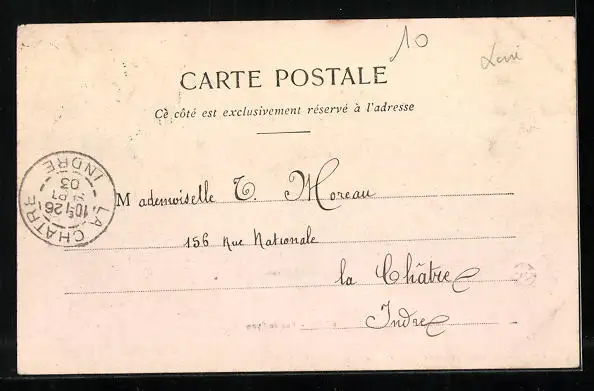 10
CARTE POSTALE
Ce côté est exclusivement réservé à l'adresse
Mademoiselle T. Moreau
156 Rue Nationale
la Châtre
Indre
LA CHATRE
INDRE
26
03